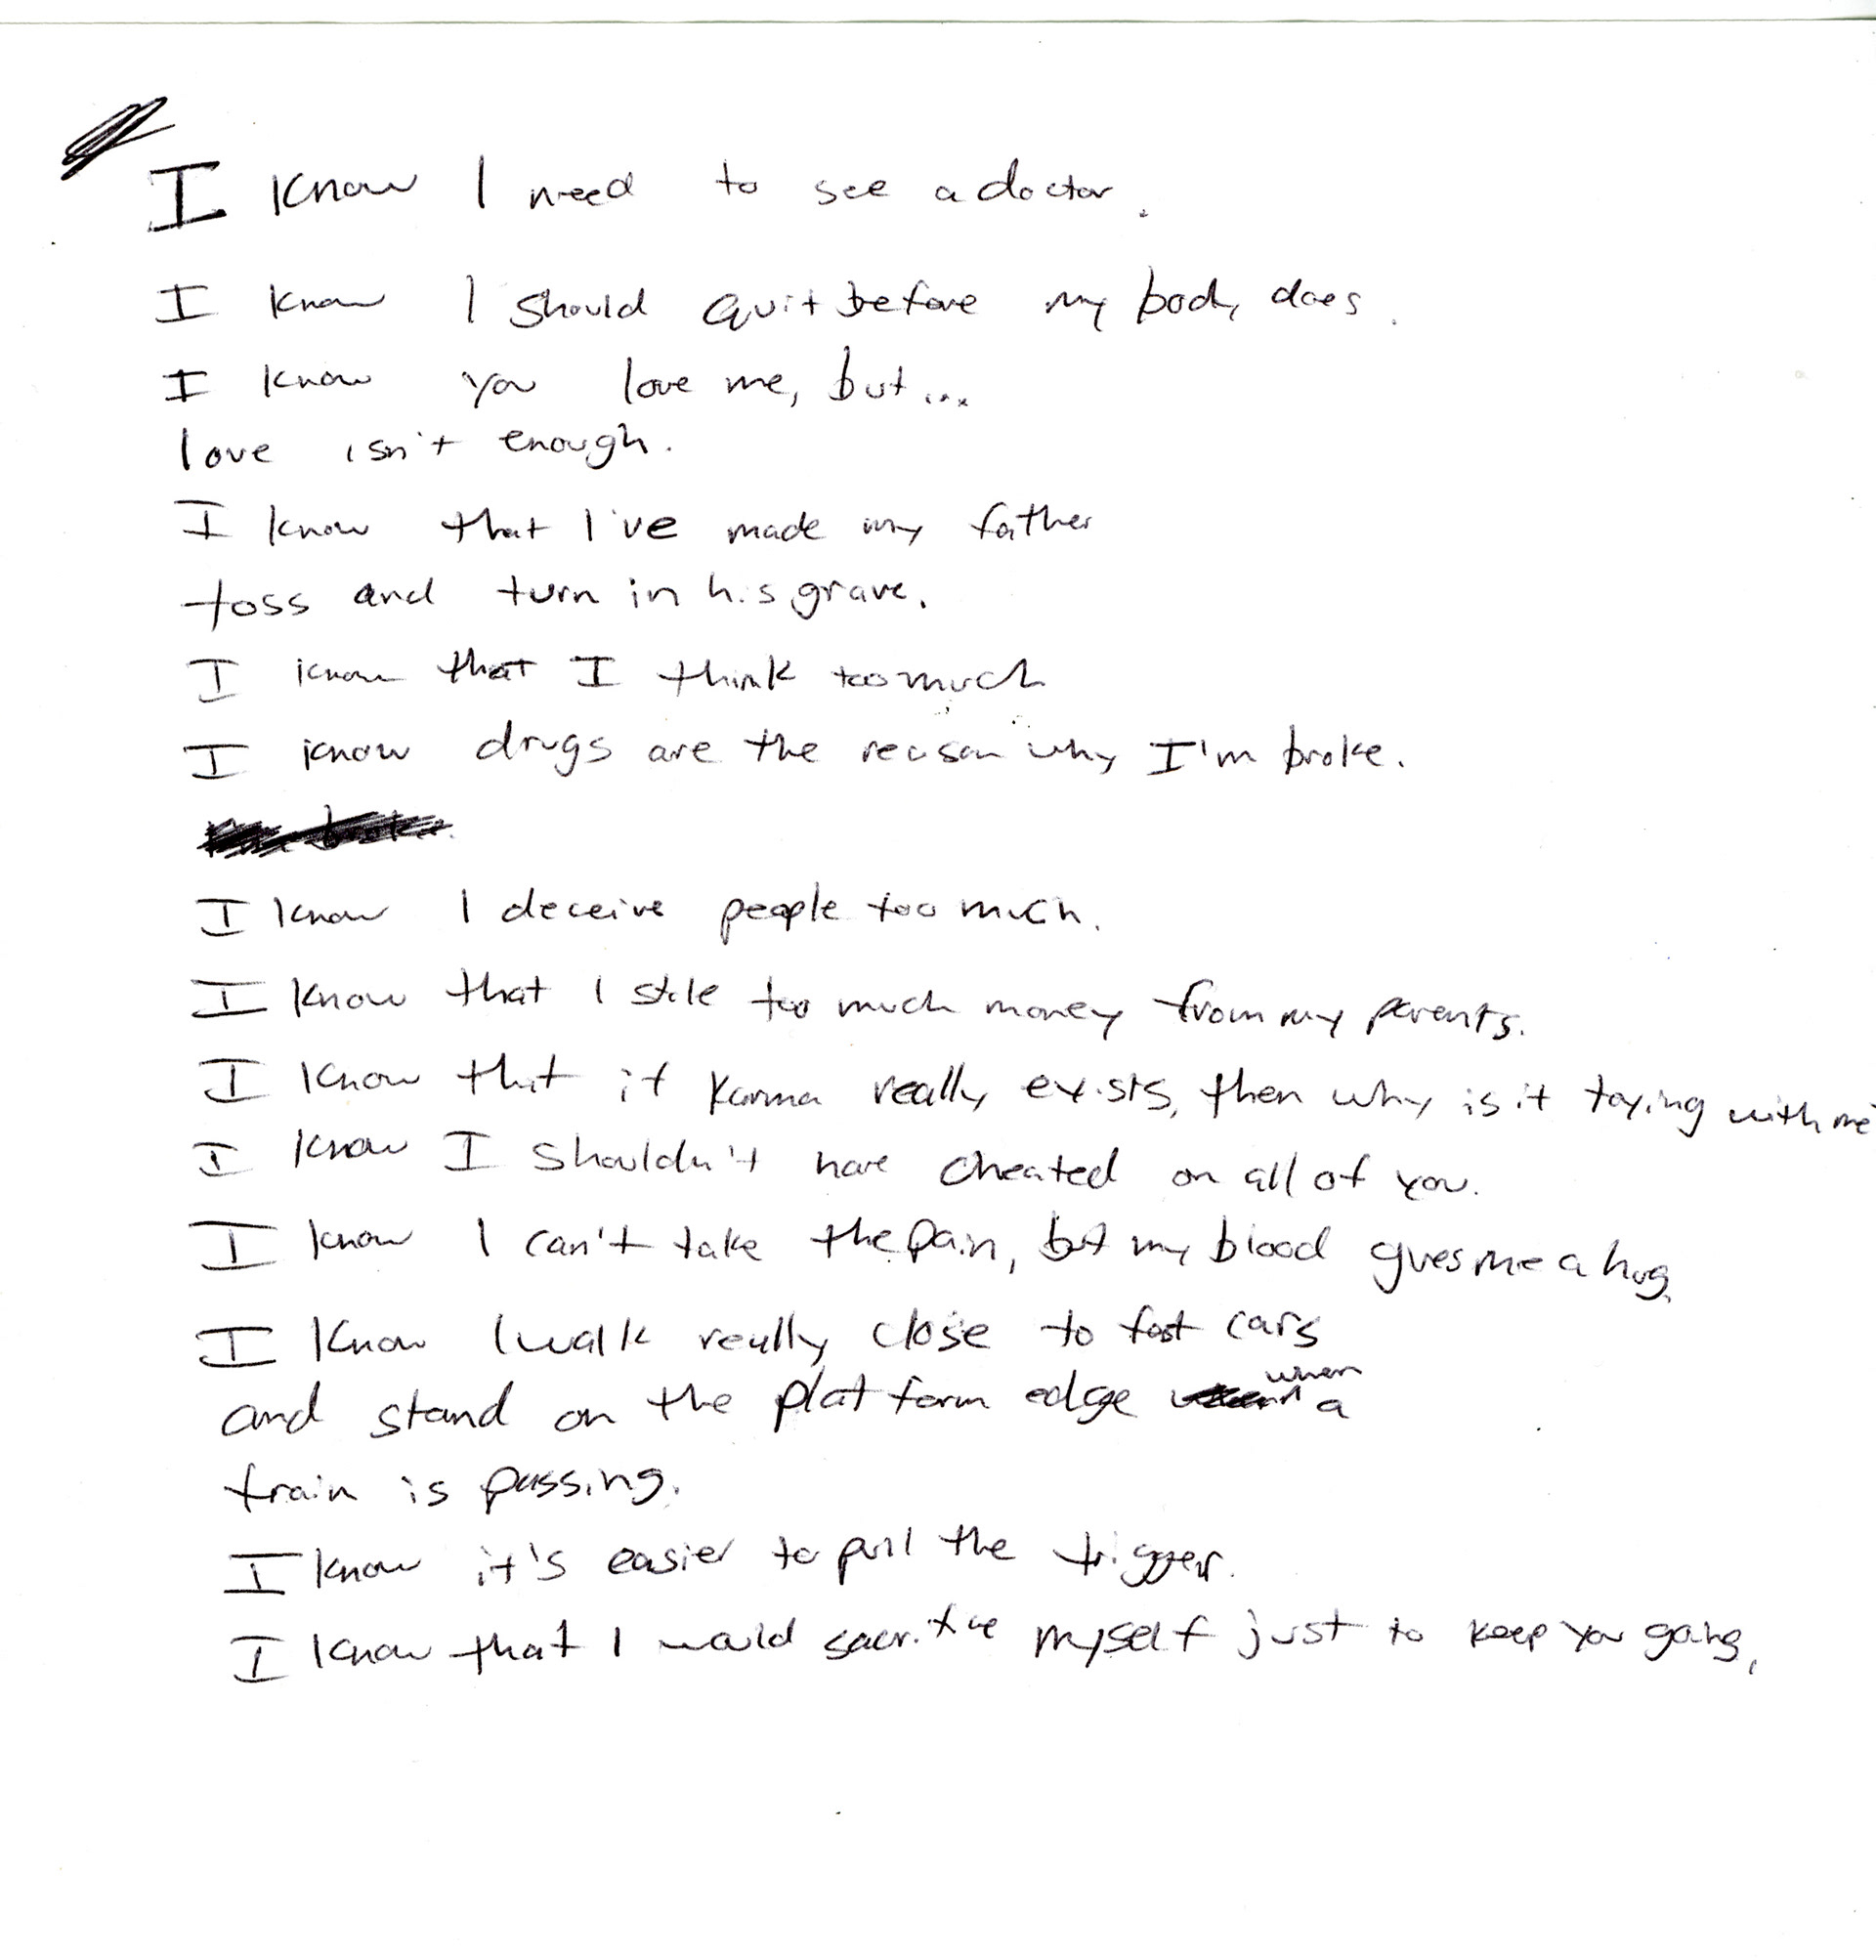 I know I need to see a doctor.
I know I should quit before my body does.
I know you love me, but...
love isn't enough.
I know that I've made my father
toss and turn in his grave.
I know that I think too much
I know drugs are the reason why I'm broke.
I know I deceive people too much.
I know that I stole too much money from my parents.
I know that if karma really exists, then why is it toying with me
I know I shouldn't have cheated on all of you.
I know I can't take the pain, but my blood gives me a hug.
I know I walk really close to fast cars
and stand on the platform edge when a
train is passing.
I know it's easier to pull the trigger.
I know that I would sacrifice myself just to keep you going.